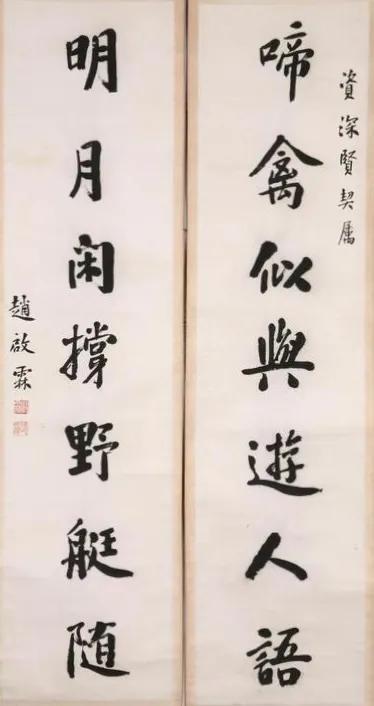 資深賢契属
啼禽似與遊人語
明月闲撑野艇随
趙啟霖